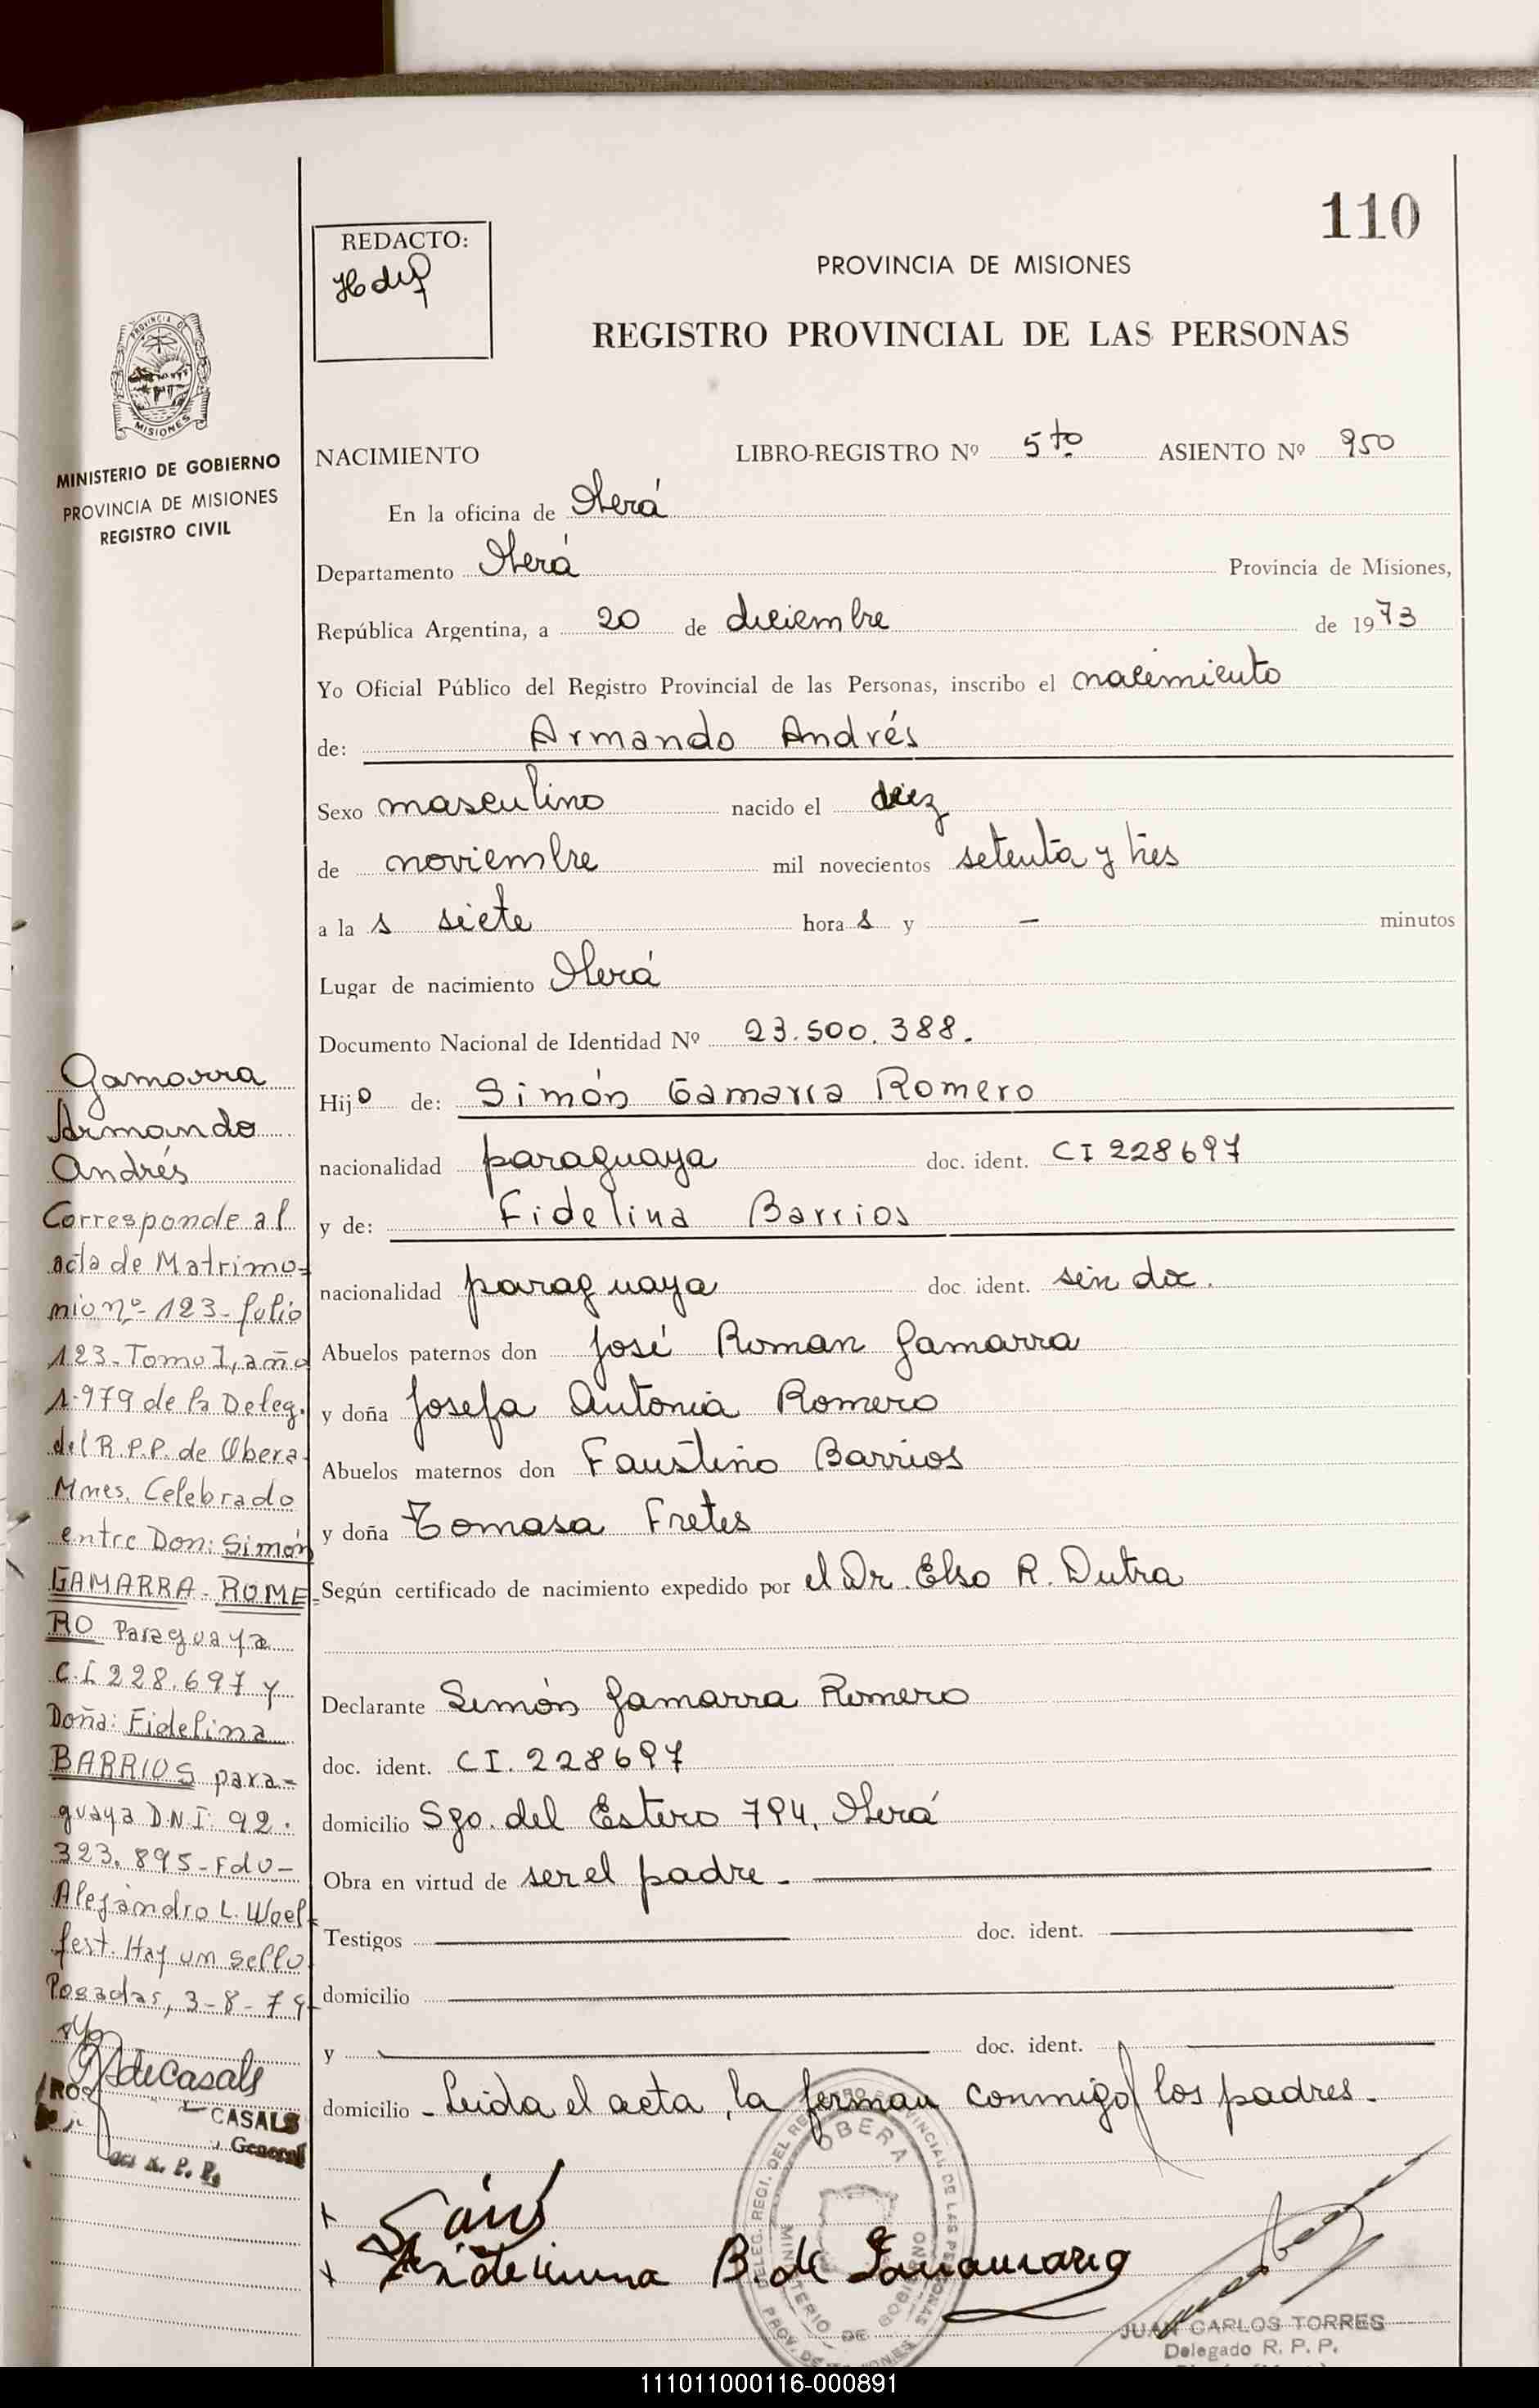 110
REDACTO:
PROVINCIA DE MISIONES
REGISTRO PROVINCIAL DE LAS PERSONAS
MISIONES
MINISTERIO DE GOBIERNO
PROVINCIA DE MISIONES
REGISTRO CIVIL
NACIMIENTO LIBRO-REGISTRO Nº 5to ASIENTO Nº 950
En la oficina de Oberá
Departamento Oberá Provincia de Misiones,
República Argentina, a 20 de diciembre de 1973
Yo Oficial Público del Registro Provincial de las Personas, inscribo el nacimiento
de: Armando Andrés
Sexo masculino nacido el diez
de noviembre mil novecientos setenta y tres
a la s siete hora s y — minutos
Lugar de nacimiento Oberá
Documento Nacional de Identidad Nº 23.500.388.
Hijo de: Simón Gamarra Romero
nacionalidad paraguaya doc. ident. CI 228697
y de: Fidelina Barrios
nacionalidad paraguaya doc. ident. sin doc.
Abuelos paternos don José Roman Gamarra
y doña Josefa Antonia Romero
Abuelos maternos don Faustino Barrios
y doña Tomasa Fretes
Según certificado de nacimiento expedido por el Dr. Elso R. Dutra
Declarante Simón Gamarra Romero
doc. ident. CI. 228697
domicilio Sgo. del Estero 794, Oberá
Obra en virtud de ser el padre.
Testigos doc. ident.
domicilio
y doc. ident.
domicilio - Leida el acta, la firman conmigo los padres.
Gamorra
Armando
Andrés
Corresponde al
acta de Matrimo=
nio nº 123- folio
123-Tomo I, año
1.979 de la Deleg.
del R.P.P. de Obera
Mnes. Celebrado
entre Don: Simón
GAMARRA-ROME=
RO Paraguaya
C.I 228.697 y
Doña: Fidelina
BARRIOS para-
guaya D.N.I: 92.
323.895-Fdo-
Alejandro L. Woel-
fert. Hay un sello
Posadas, 3-8-79
deCasals
CASALS
General
R. P. P.
B. de
OBERA
MINISTERIO DE GOBIERNO
JUAN CARLOS TORRES
Delegado R. P. P.
111011000116-000891